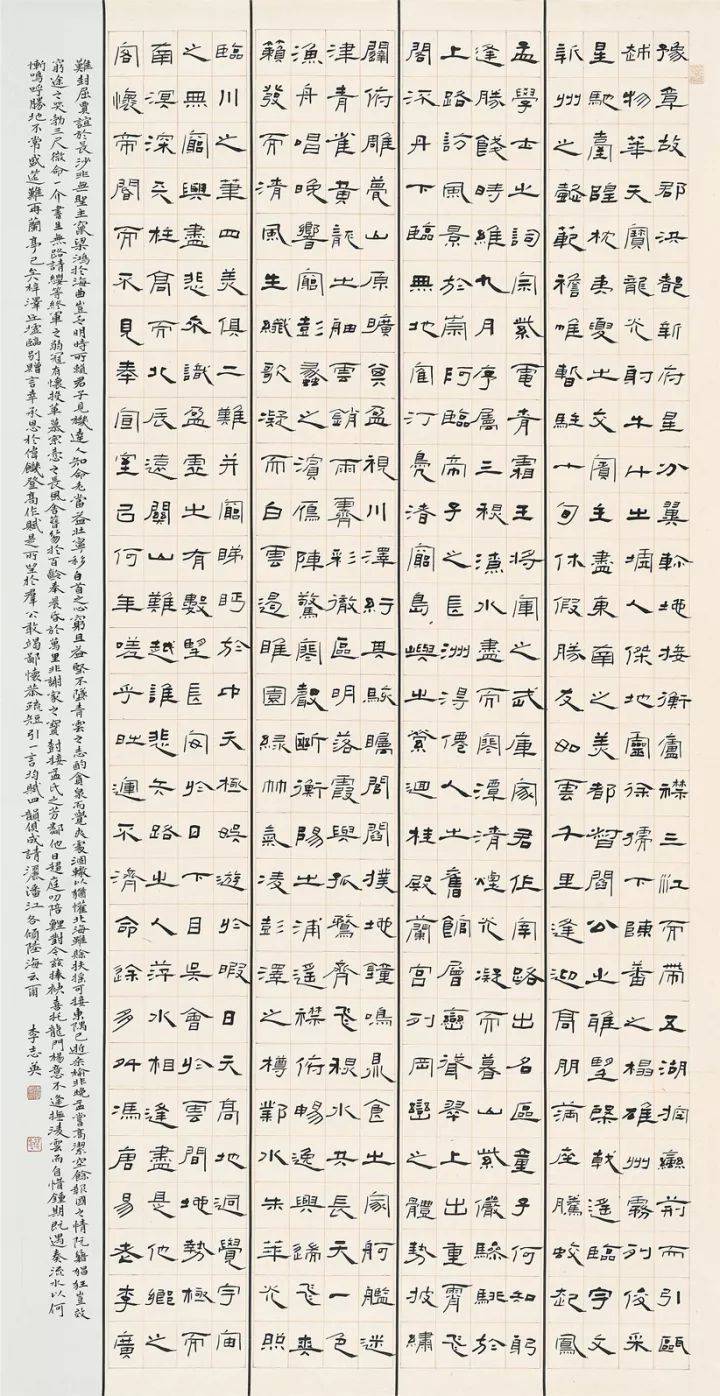 豫章故郡洪都新府星分翼軫地接衡廬襟三江而帶五湖控蠻荊而引甌
越物華天寶龍光射牛斗之墟人傑地靈徐孺下陳蕃之榻雄州霧列俊采
星馳臺隍枕夷夏之交賓主盡東南之美都督閻公之雅望棨戟遙臨宇文
新州之懿範襜帷暫駐十旬休假勝友如雲千里逢迎高朋滿座騰蛟起鳳
孟學士之詞宗紫電青霜王將軍之武庫家君作宰路出名區童子何知躬
逢勝餞時維九月序屬三秋潦水盡而寒潭清煙光凝而暮山紫儼驂騑於
上路訪風景於崇阿臨帝子之長洲得僊人之舊館層巒聳翠上出重霄飛
閣流丹下臨無地鶴汀鳧渚窮島嶼之縈迴桂殿蘭宮列岡巒之體勢披繡
闥俯雕甍山原曠其盈視川澤紆其駭矚閭閻撲地鐘鳴鼎食之家舸艦迷
津青雀黃龍之舳雲銷雨霽彩徹區明落霞與孤鶩齊飛秋水共長天一色
漁舟唱晚響窮彭蠡之濱鴈陣驚寒聲斷衡陽之浦遙襟俯暢逸興遄飛爽
籟發而清風生纖歌凝而白雲遏睢園綠竹氣凌彭澤之樽鄴水朱華光照
臨川之筆四美俱二難并窮睇眄於中天極娛遊於暇日天高地迥覺宇宙
之無窮興盡悲來識盈虛之有數望長安於日下目吳會於雲間地勢極而
南溟深天柱高而北辰遠關山難越誰悲失路之人萍水相逢盡是他鄉之
客懷帝閽而不見奉宣室以何年嗟乎時運不濟命途多舛馮唐易老李廣
難封屈賈誼於長沙非無聖主竄梁鴻於海曲豈乏明時所賴君子見機達人知命老當益壯寧移白首之心窮且益堅不墜青雲之志酌貪泉而覺爽處涸轍以猶懽北海雖賒扶搖可接東隅已逝桑榆非晚孟嘗高潔空餘報國之情阮籍猖狂豈效
窮途之哭勃三尺微命一介書生無路請纓等終軍之弱冠有懷投筆慕宗愨之長風舍簪笏於百齡奉晨昏於萬里非謝家之寶樹接孟氏之芳鄰他日趨庭叨陪鯉對今茲捧袂喜托龍門楊意不逢撫凌雲而自惜鍾期既遇奏流水以何
慚嗚呼勝地不常盛筵難再蘭亭已矣梓澤丘墟臨別贈言幸承恩於偉餞登高作賦是所望於羣公敢竭鄙懷恭疏短引一言均賦四韻俱成請灑潘江各傾陸海云爾 李志英